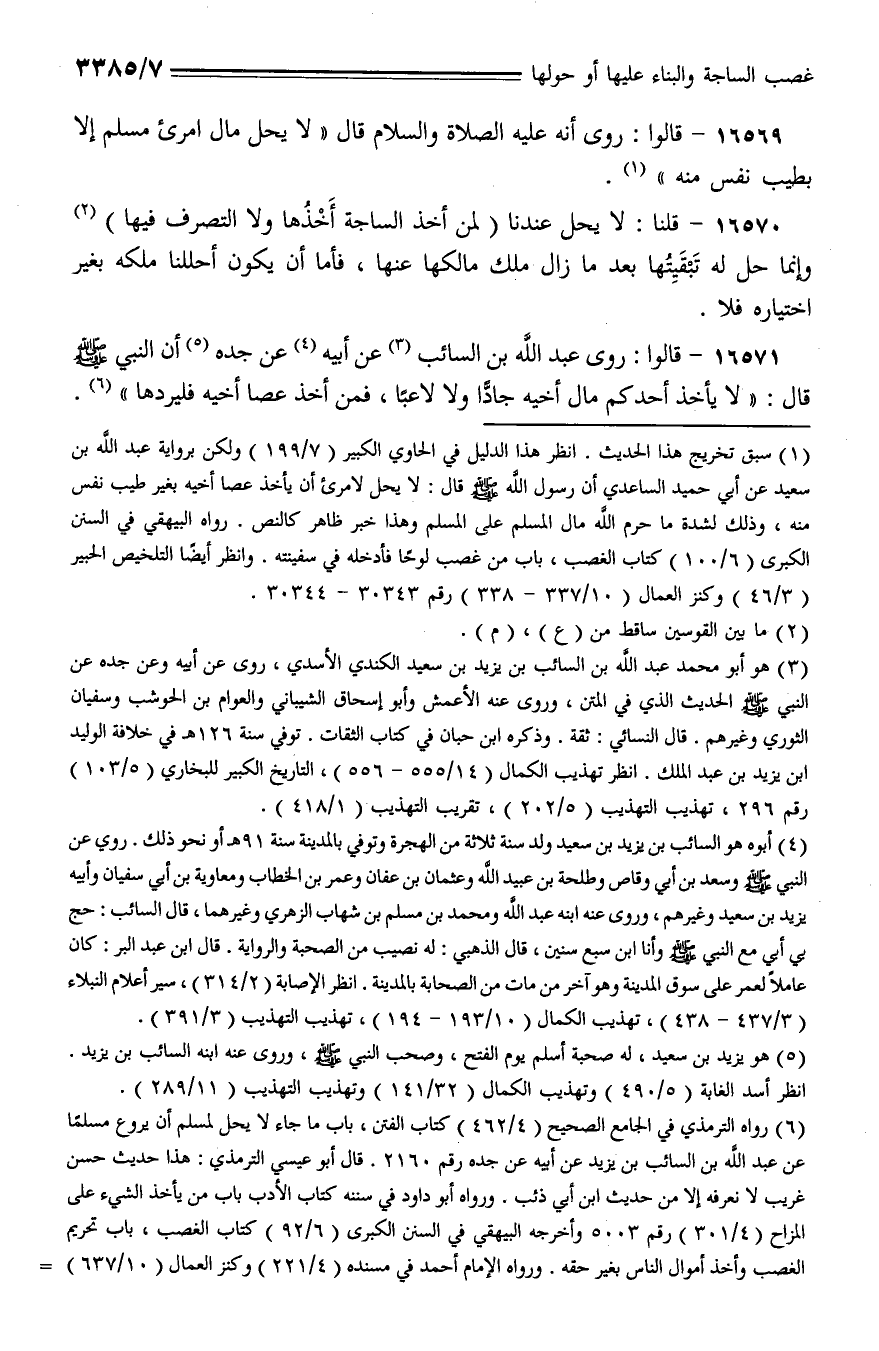 غصب الساجة والبناء عليها أو حولها ٣٣٨٥/٧
١٦٥٦٩ - قالوا : روى أنه عليه الصلاة والسلام قال « لا يحل مال امرئ مسلم إلا
بطيب نفس منه » (١) .
١٦٥٧٠ - قلنا : لا يحل عندنا ( لمن أخذ الساجة أَخْذُها ولا التصرف فيها ) (٢)
وإنما حل له تَبْقَيِتُها بعد ما زال ملك مالكها عنها ، فأما أن يكون أحللنا ملكه بغير
اختياره فلا .
١٦٥٧١ - قالوا : روى عبد اللَّه بن السائب (٣) عن أبيه (٤) عن جده (٥) أن النبي ﷺ
قال : « لا يأخذ أحدكم مال أخيه جادًّا ولا لاعبًا ، فمن أخذ عصا أخيه فليردها » (٦) .
(١) سبق تخريج هذا الحديث . انظر هذا الدليل في الحاوي الكبير ( ١٩٩/٧ ) ولكن برواية عبد اللَّه بن
سعيد عن أبي حميد الساعدي أن رسول اللَّه ﷺ قال : لا يحل لامرئ أن يأخذ عصا أخيه بغير طيب نفس
منه ، وذلك لشدة ما حرم اللَّه مال المسلم على المسلم وهذا خبر ظاهر كالنص . رواه البيهقي في السنن
الكبرى ( ١٠٠/٦ ) كتاب الغصب ، باب من غصب لوحًا فأدخله في سفينته . وانظر أيضًا التلخيص الحبير
( ٤٦/٣ ) وكنز العمال ( ٣٣٧/١٠ - ٣٣٨ ) رقم ٣٠٣٤٣ - ٣٠٣٤٤ .
(٢) ما بين القوسين ساقط من ( ع ) ، ( م ) .
(٣) هو أبو محمد عبد اللَّه بن السائب بن يزيد بن سعيد الكندي الأسدي ، روى عن أبيه وعن جده عن
النبي ﷺ الحديث الذي في المتن ، وروى عنه الأعمش وأبو إسحاق الشيباني والعوام بن الحوشب وسفيان
الثوري وغيرهم . قال النسائي : ثقة . وذكره ابن حبان في كتاب الثقات . توفي سنة ١٢٦هـ في خلافة الوليد
ابن يزيد بن عبد الملك . انظر تهذيب الكمال ( ٥٥٥/١٤ - ٥٥٦ ) ، التاريخ الكبير للبخاري ( ١٠٣/٥ )
رقم ٢٩٦ ، تهذيب التهذيب ( ٢٠٢/٥ ) ، تقريب التهذيب ( ٤١٨/١ ) .
(٤) أبوه هو السائب بن يزيد بن سعيد ولد سنة ثلاثة من الهجرة وتوفي بالمدينة سنة ٩١هـ أو نحو ذلك . روي عن
النبي ﷺ وسعد بن أبي وقاص وطلحة بن عبيد اللَّه وعثمان بن عفان وعمر بن الخطاب ومعاوية بن أبي سفيان وأبيه
يزيد بن سعيد وغيرهم ، وروى عنه ابنه عبد اللَّه ومحمد بن مسلم بن شهاب الزهري وغيرهما ، قال السائب : حج
بي أبي مع النبي ﷺ وأنا ابن سبع سنين ، قال الذهبي : له نصيب من الصحبة والرواية . قال ابن عبد البر : كان
عاملاً لعمر على سوق المدينة وهو آخر من مات من الصحابة بالمدينة . انظر الإصابة ( ٣١٤/٢ ) ، سير أعلام النبلاء
( ٤٣٧/٣ - ٤٣٨ ) ، تهذيب الكمال ( ١٩٣/١٠ - ١٩٤ ) ، تهذيب التهذيب ( ٣٩١/٣ ) .
(٥) هو يزيد بن سعيد ، له صحبة أسلم يوم الفتح ، وصحب النبي ﷺ ، وروى عنه ابنه السائب بن يزيد .
انظر أسد الغابة ( ٤٩٠/٥ ) وتهذيب الكمال ( ١٤١/٣٢ ) وتهذيب التهذيب ( ٢٨٩/١١ ) .
(٦) رواه الترمذي في الجامع الصحيح ( ٤٦٢/٤ ) كتاب الفتن ، باب ما جاء لا يحل لمسلم أن يروع مسلمًا
عن عبد اللَّه بن السائب بن يزيد عن أبيه عن جده رقم ٢١٦٠ . قال أبو عيسي الترمذي : هذا حديث حسن
غريب لا نعرفه إلا من حديث ابن أبي ذئب . ورواه أبو داود في سننه كتاب الأدب باب من يأخذ الشيء على
المزاح ( ٣٠١/٤ ) رقم ٥٠٠٣ وأخرجه البيهقي في السنن الكبرى ( ٩٢/٦ ) كتاب الغصب ، باب تحريم
الغصب وأخذ أموال الناس بغير حقه . ورواه الإمام أحمد في مسنده ( ٢٢١/٤ ) وكنز العمال ( ٦٣٧/١٠ ) =